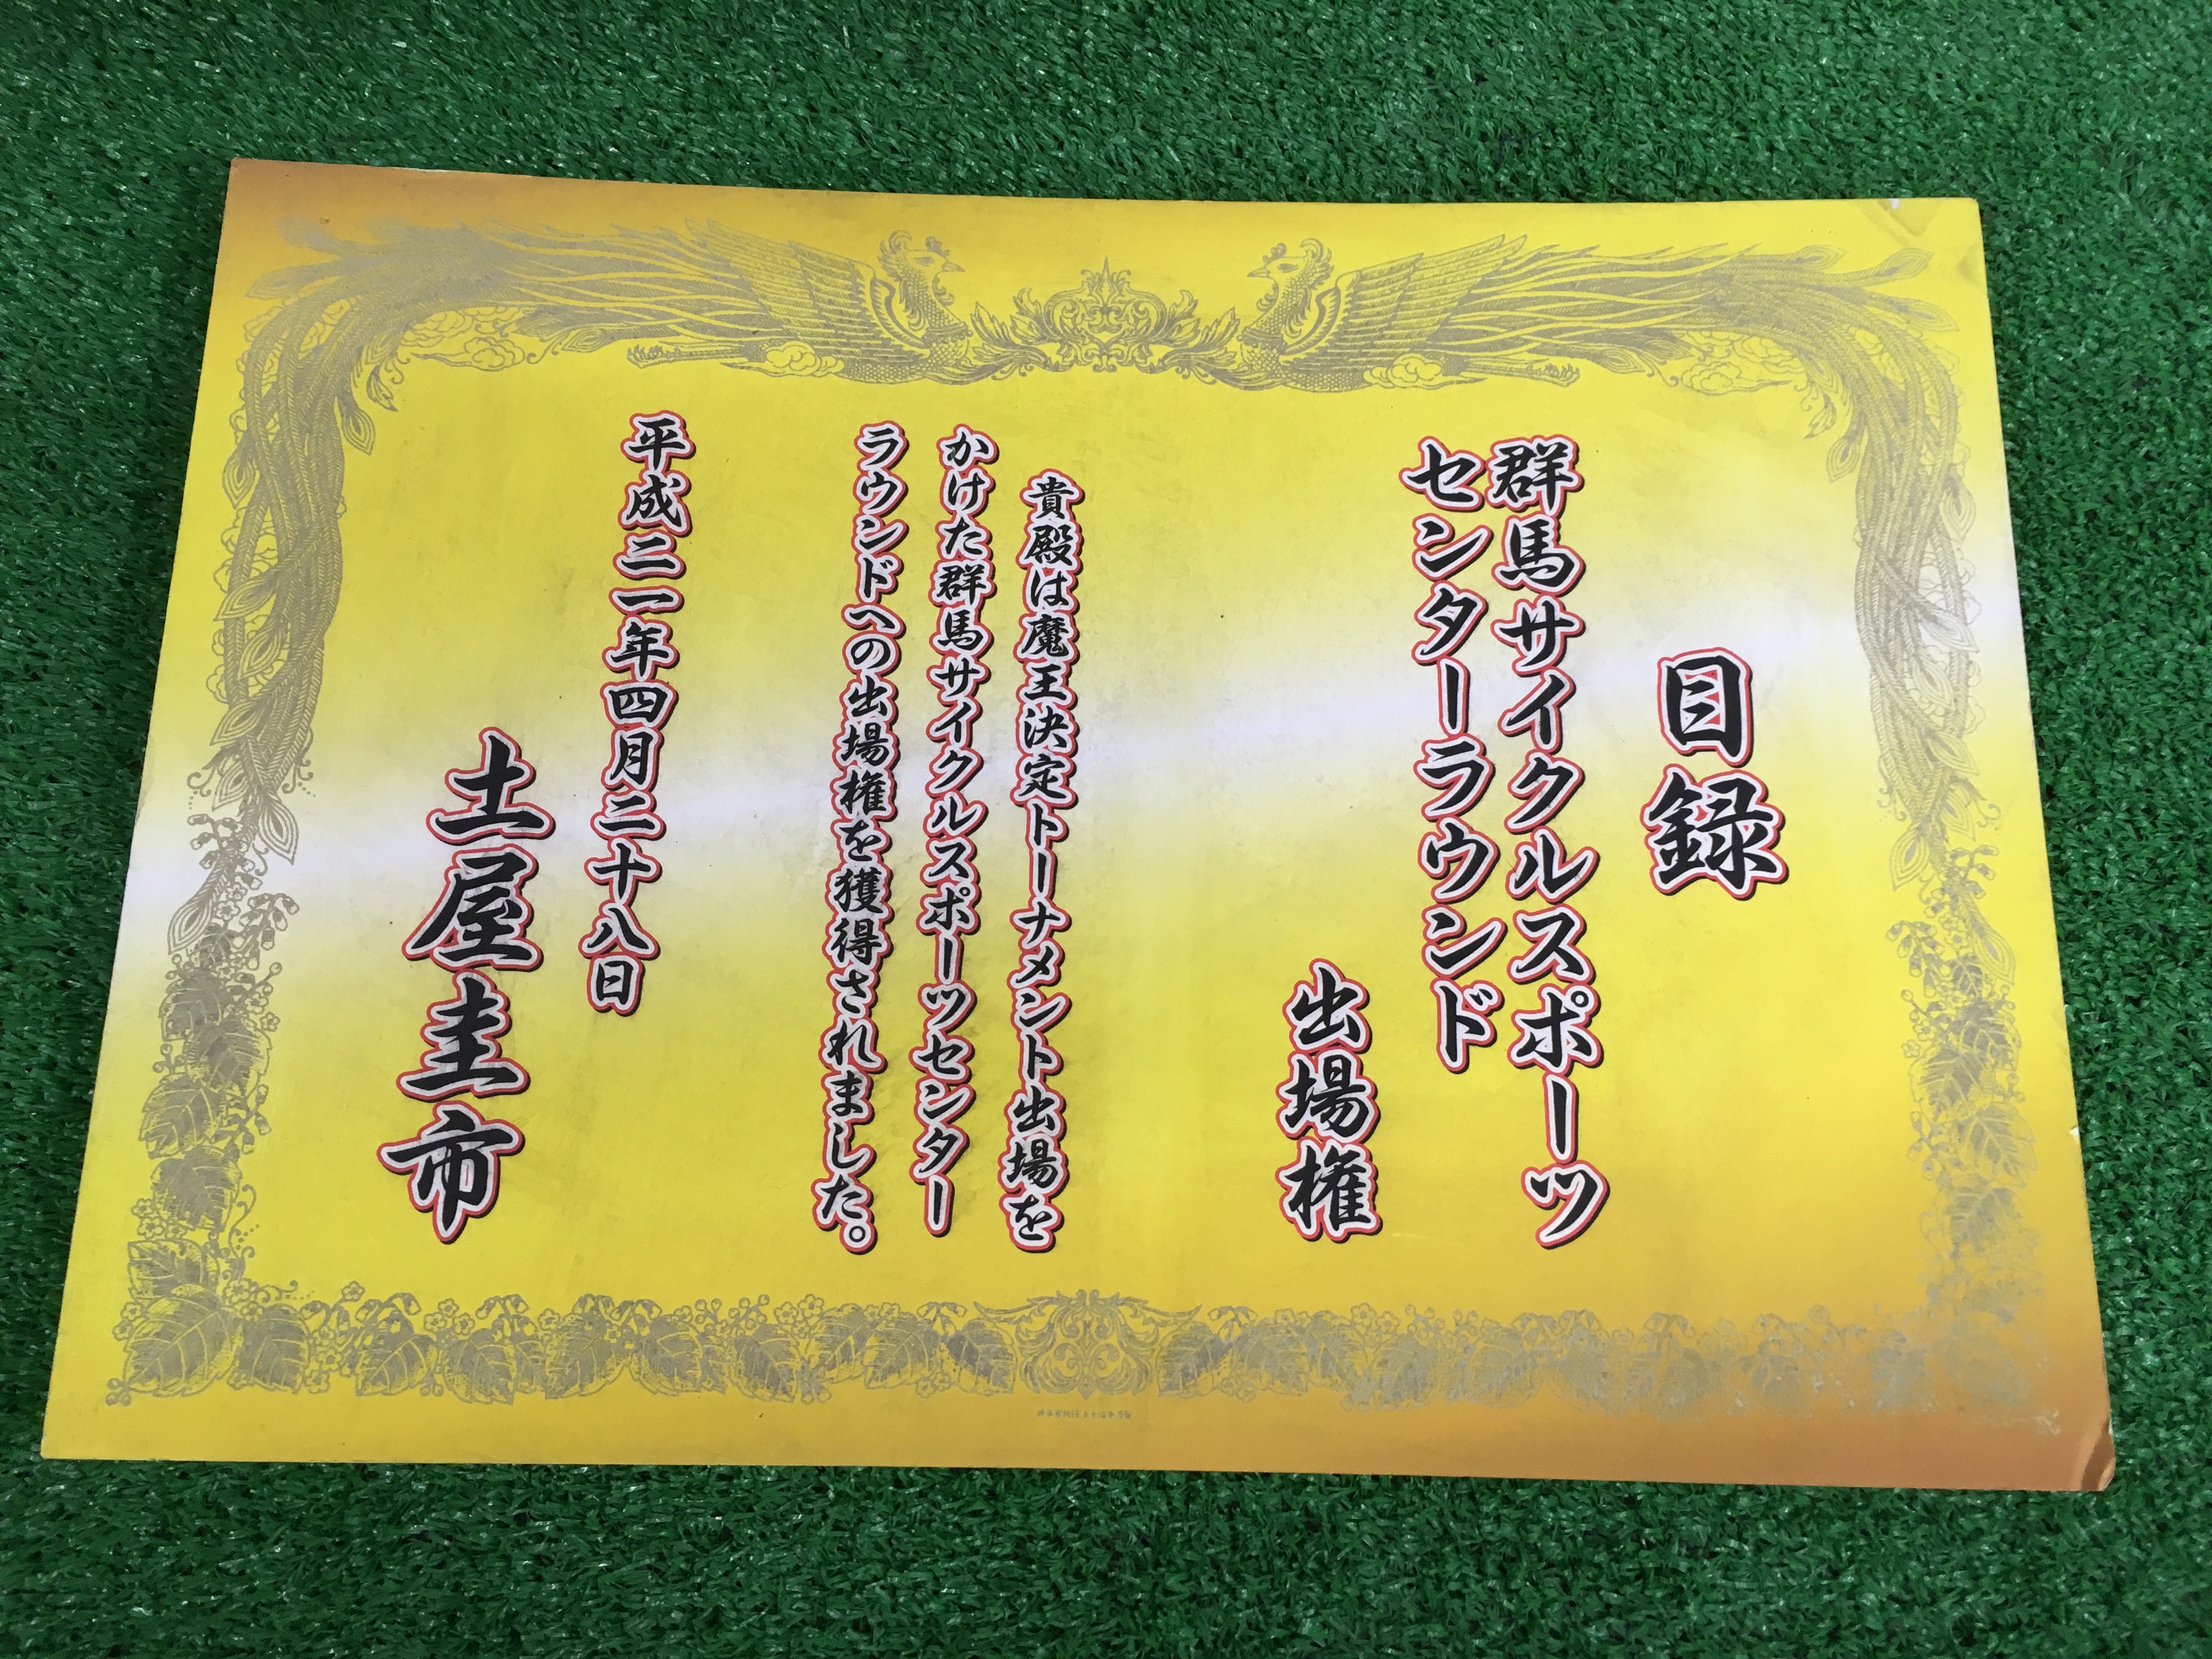 目録
群馬サイクルスポーツ
センターラウンド
出場権
貴殿は魔王決定トーナメント出場を
かけた群馬サイクルスポーツセンター
ラウンドへの出場権を獲得されました。
平成二一年四月二十八日
土屋圭市